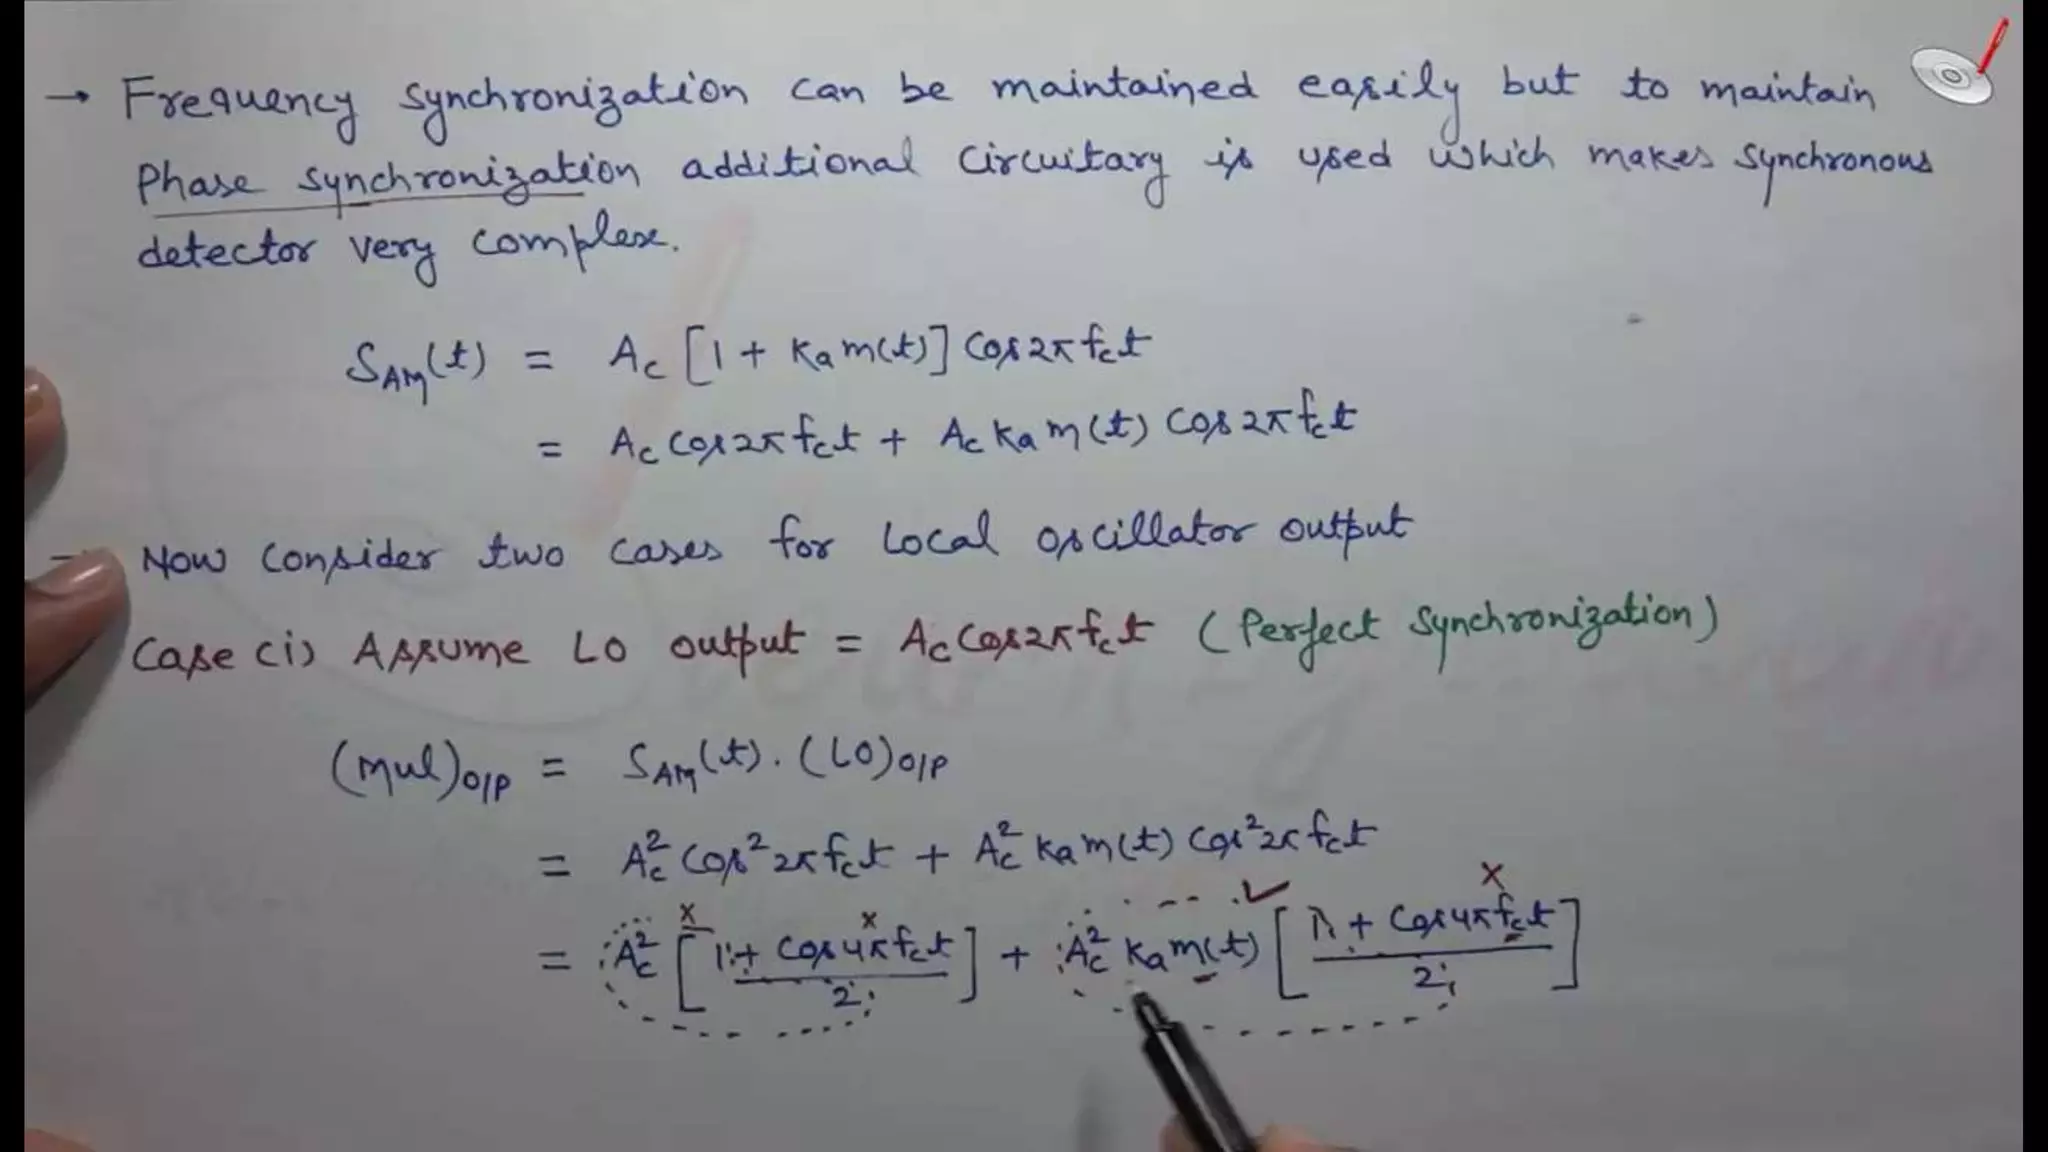 → Frequency synchronization can be maintained easily but to maintain
Phase synchronization additional circuitary is used which makes synchronous
detector very complex.
S_AM(t) = A_c [1 + K_a m(t)] Cos2πf_ct
= A_c Cos2πf_ct + A_c K_a m(t) Cos2πf_ct
→ Now consider two cases for Local oscillator output
Case (i) Assume LO output = A_c Cos2πf_ct (Perfect Synchronization)
(mul)_O/P = S_AM(t) . (LO)_O/P
= A_c² Cos²2πf_ct + A_c² K_a m(t) Cos²2πf_ct
= A_c² [(1 + Cos4πf_ct)/2] + A_c² K_a m(t) [(1 + Cos4πf_ct)/2]